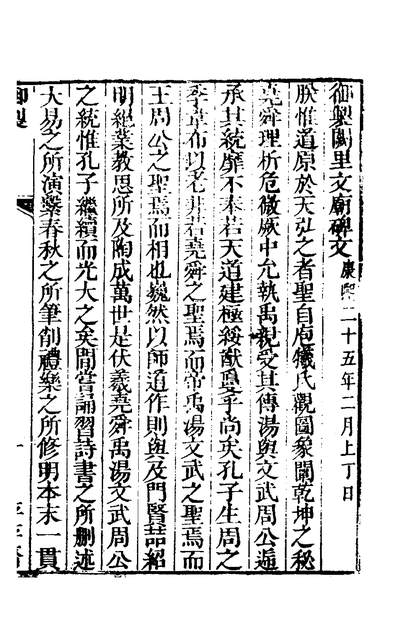 御製闕里文廟碑文 康熙二十五年二月上丁日
朕惟道原於天弘之者聖自庖犧氏觀圖象闡乾坤之秘
堯舜理析危微厥中允執禹親受其傳湯與文武周公遞
承其統靡不奉若天道建極綏猷敻乎尚矣孔子生周之
季韋布以老非若堯舜之聖焉而帝禹湯文武之聖焉而
王周公之聖焉而相也巍然以師道作則與及門賢喆紹
明絕業教思所及陶成萬世是伏羲堯舜禹湯文武周公
之統惟孔子繼續而光大之矣間嘗誦習詩書之所刪述
大易之所演繫春秋之所筆削禮樂之所修明本末一貫
御製